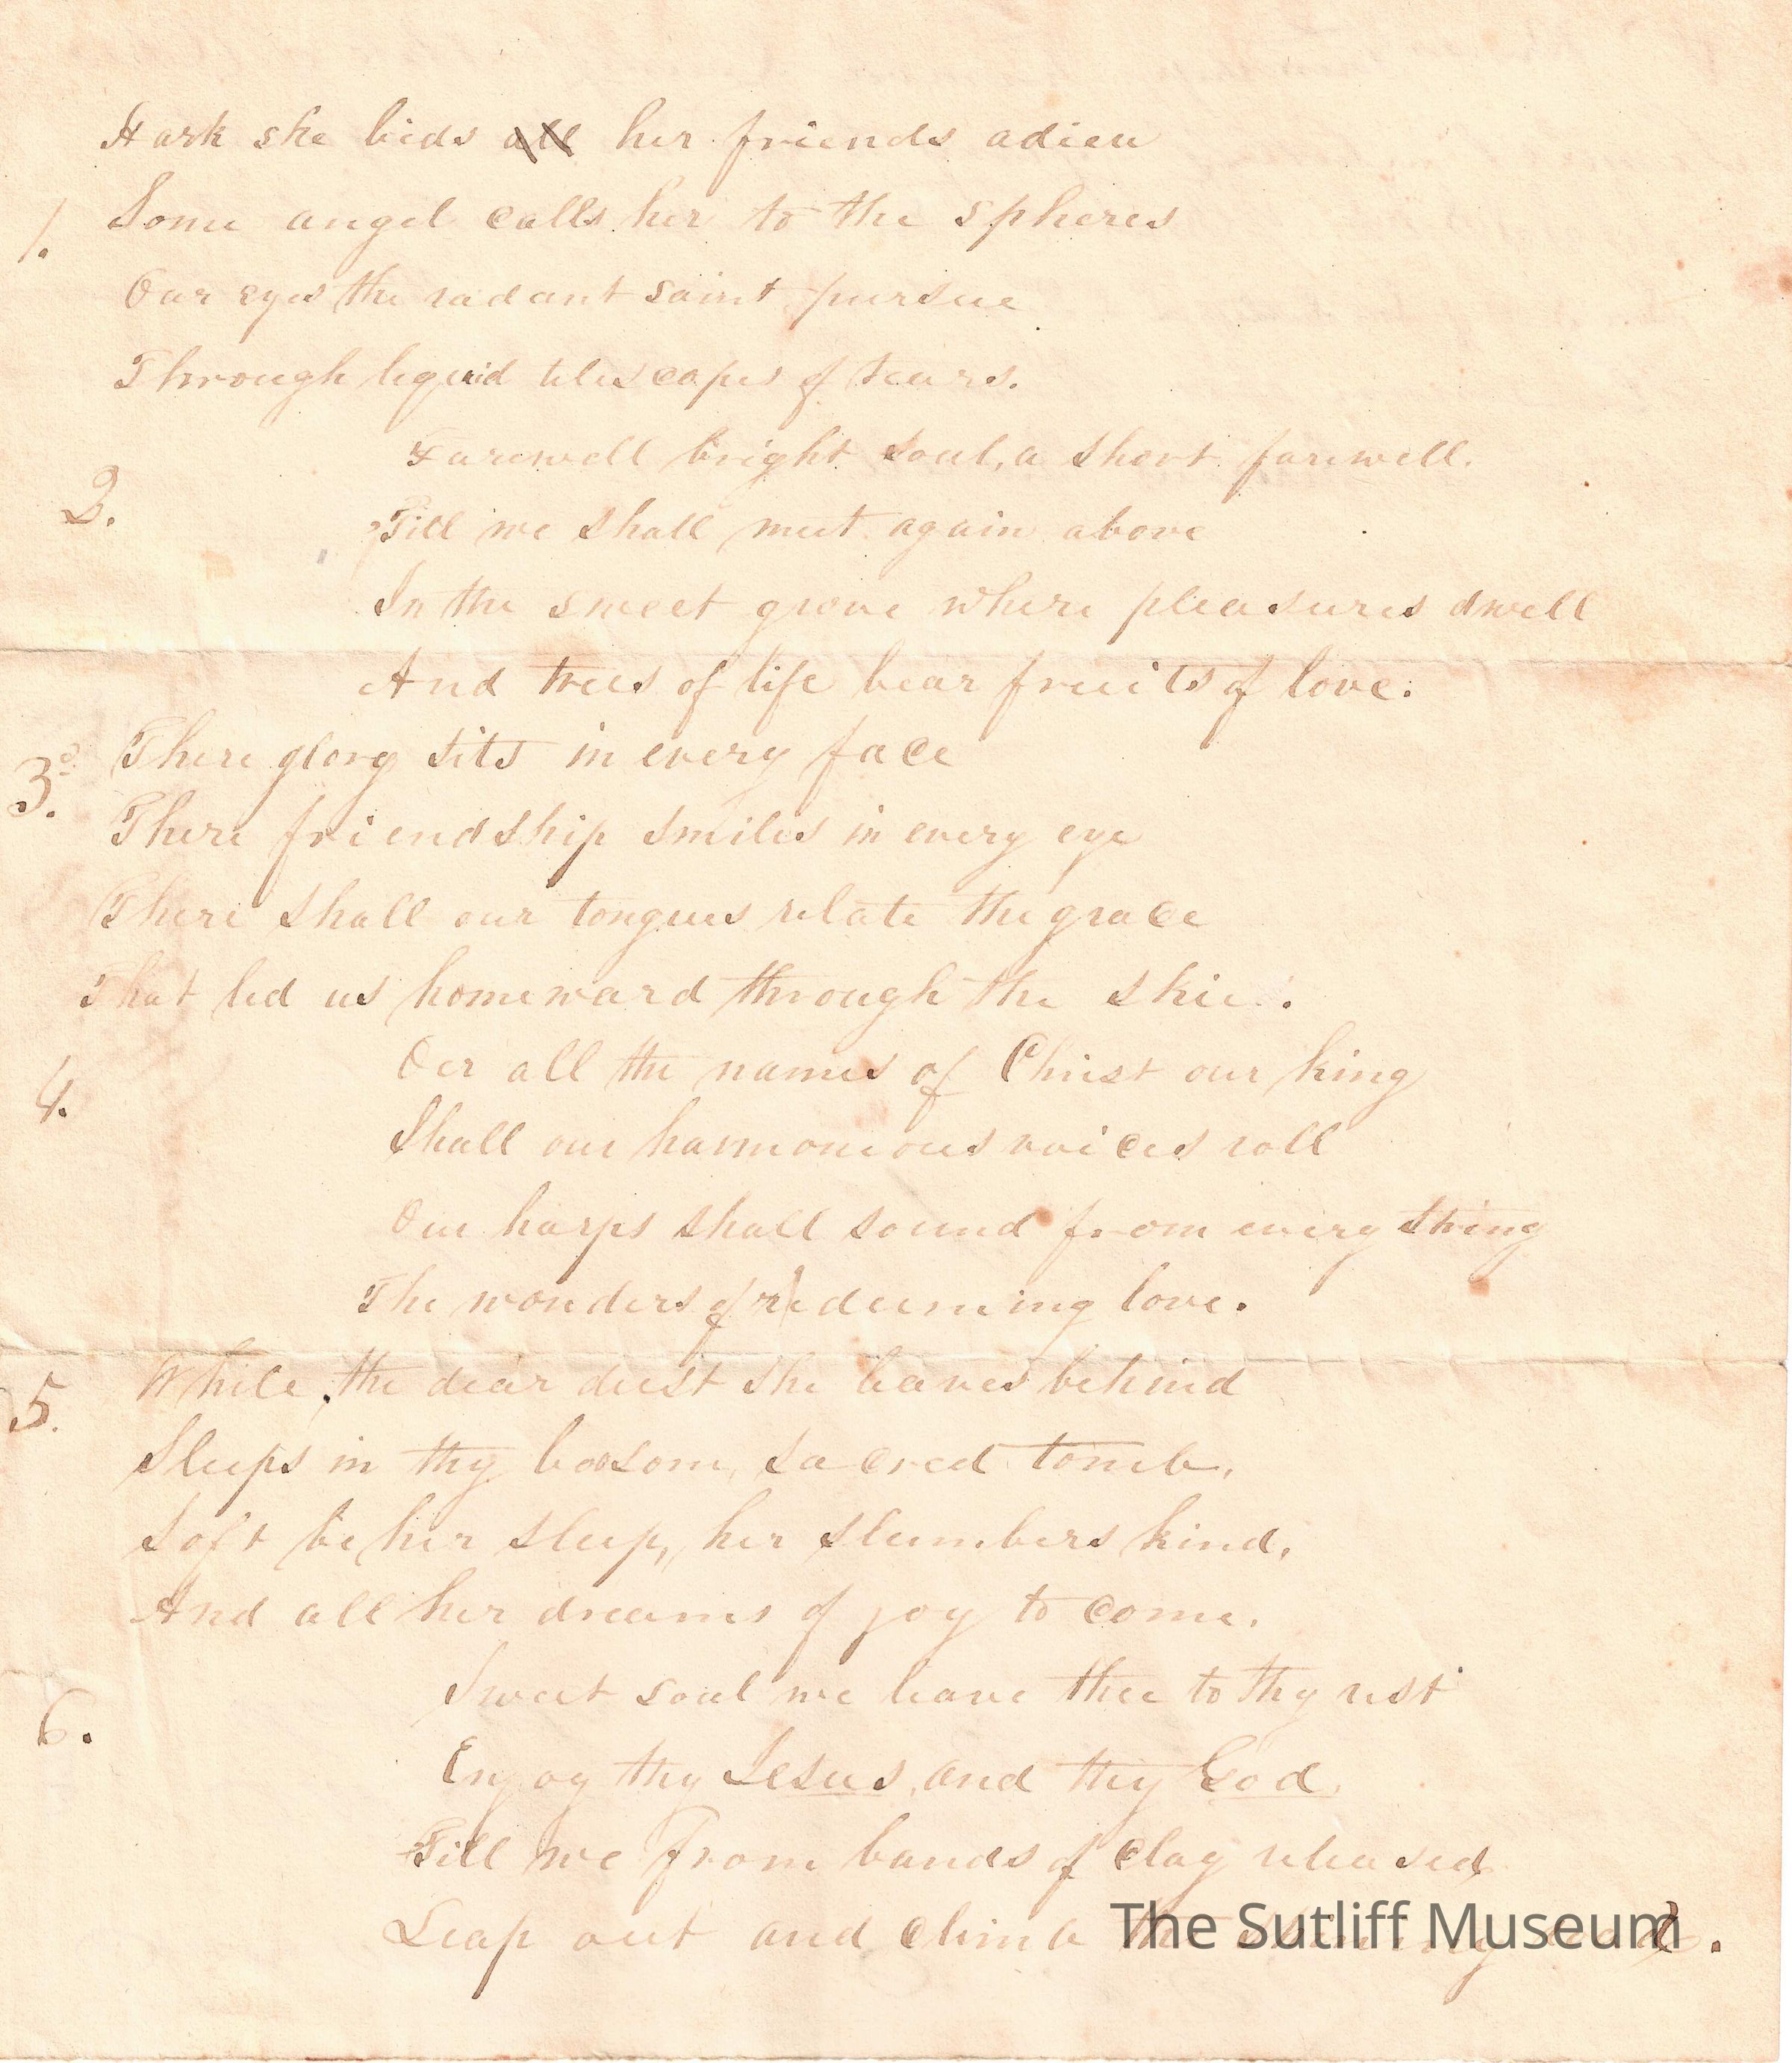 Hark she bids all her friends adieu
1. Some angel calls her to the spheres
Our eyes the radant saint pursue
Through liquid telescopes of tears.
Farewell bright soul, a short farewell.
2. Till we shall meet again above
In the sweet grove where pleasures dwell
And trees of life bear fruits of love.
3. There glory sits in every face
There friendship smiles in every eye
There shall our tongues relate the grace
That led us homeward through the skies.
4. Oer all the names of Christ our king
Shall our harmonious voices roll
Our harps shall sound from every string
The wonders of redeeming love.
5. While the dear dust she leaves behind
Sleeps in thy bosom, sacred tomb,
Soft be her sleep, her slumbers kind,
And all her dreams of joy to come.
6. Sweet soul we leave thee to thy rest
Enjoy thy Jesus, and thy God
Till we from bands of clay released
Leap out and climb the shining
The Sutliff Museum